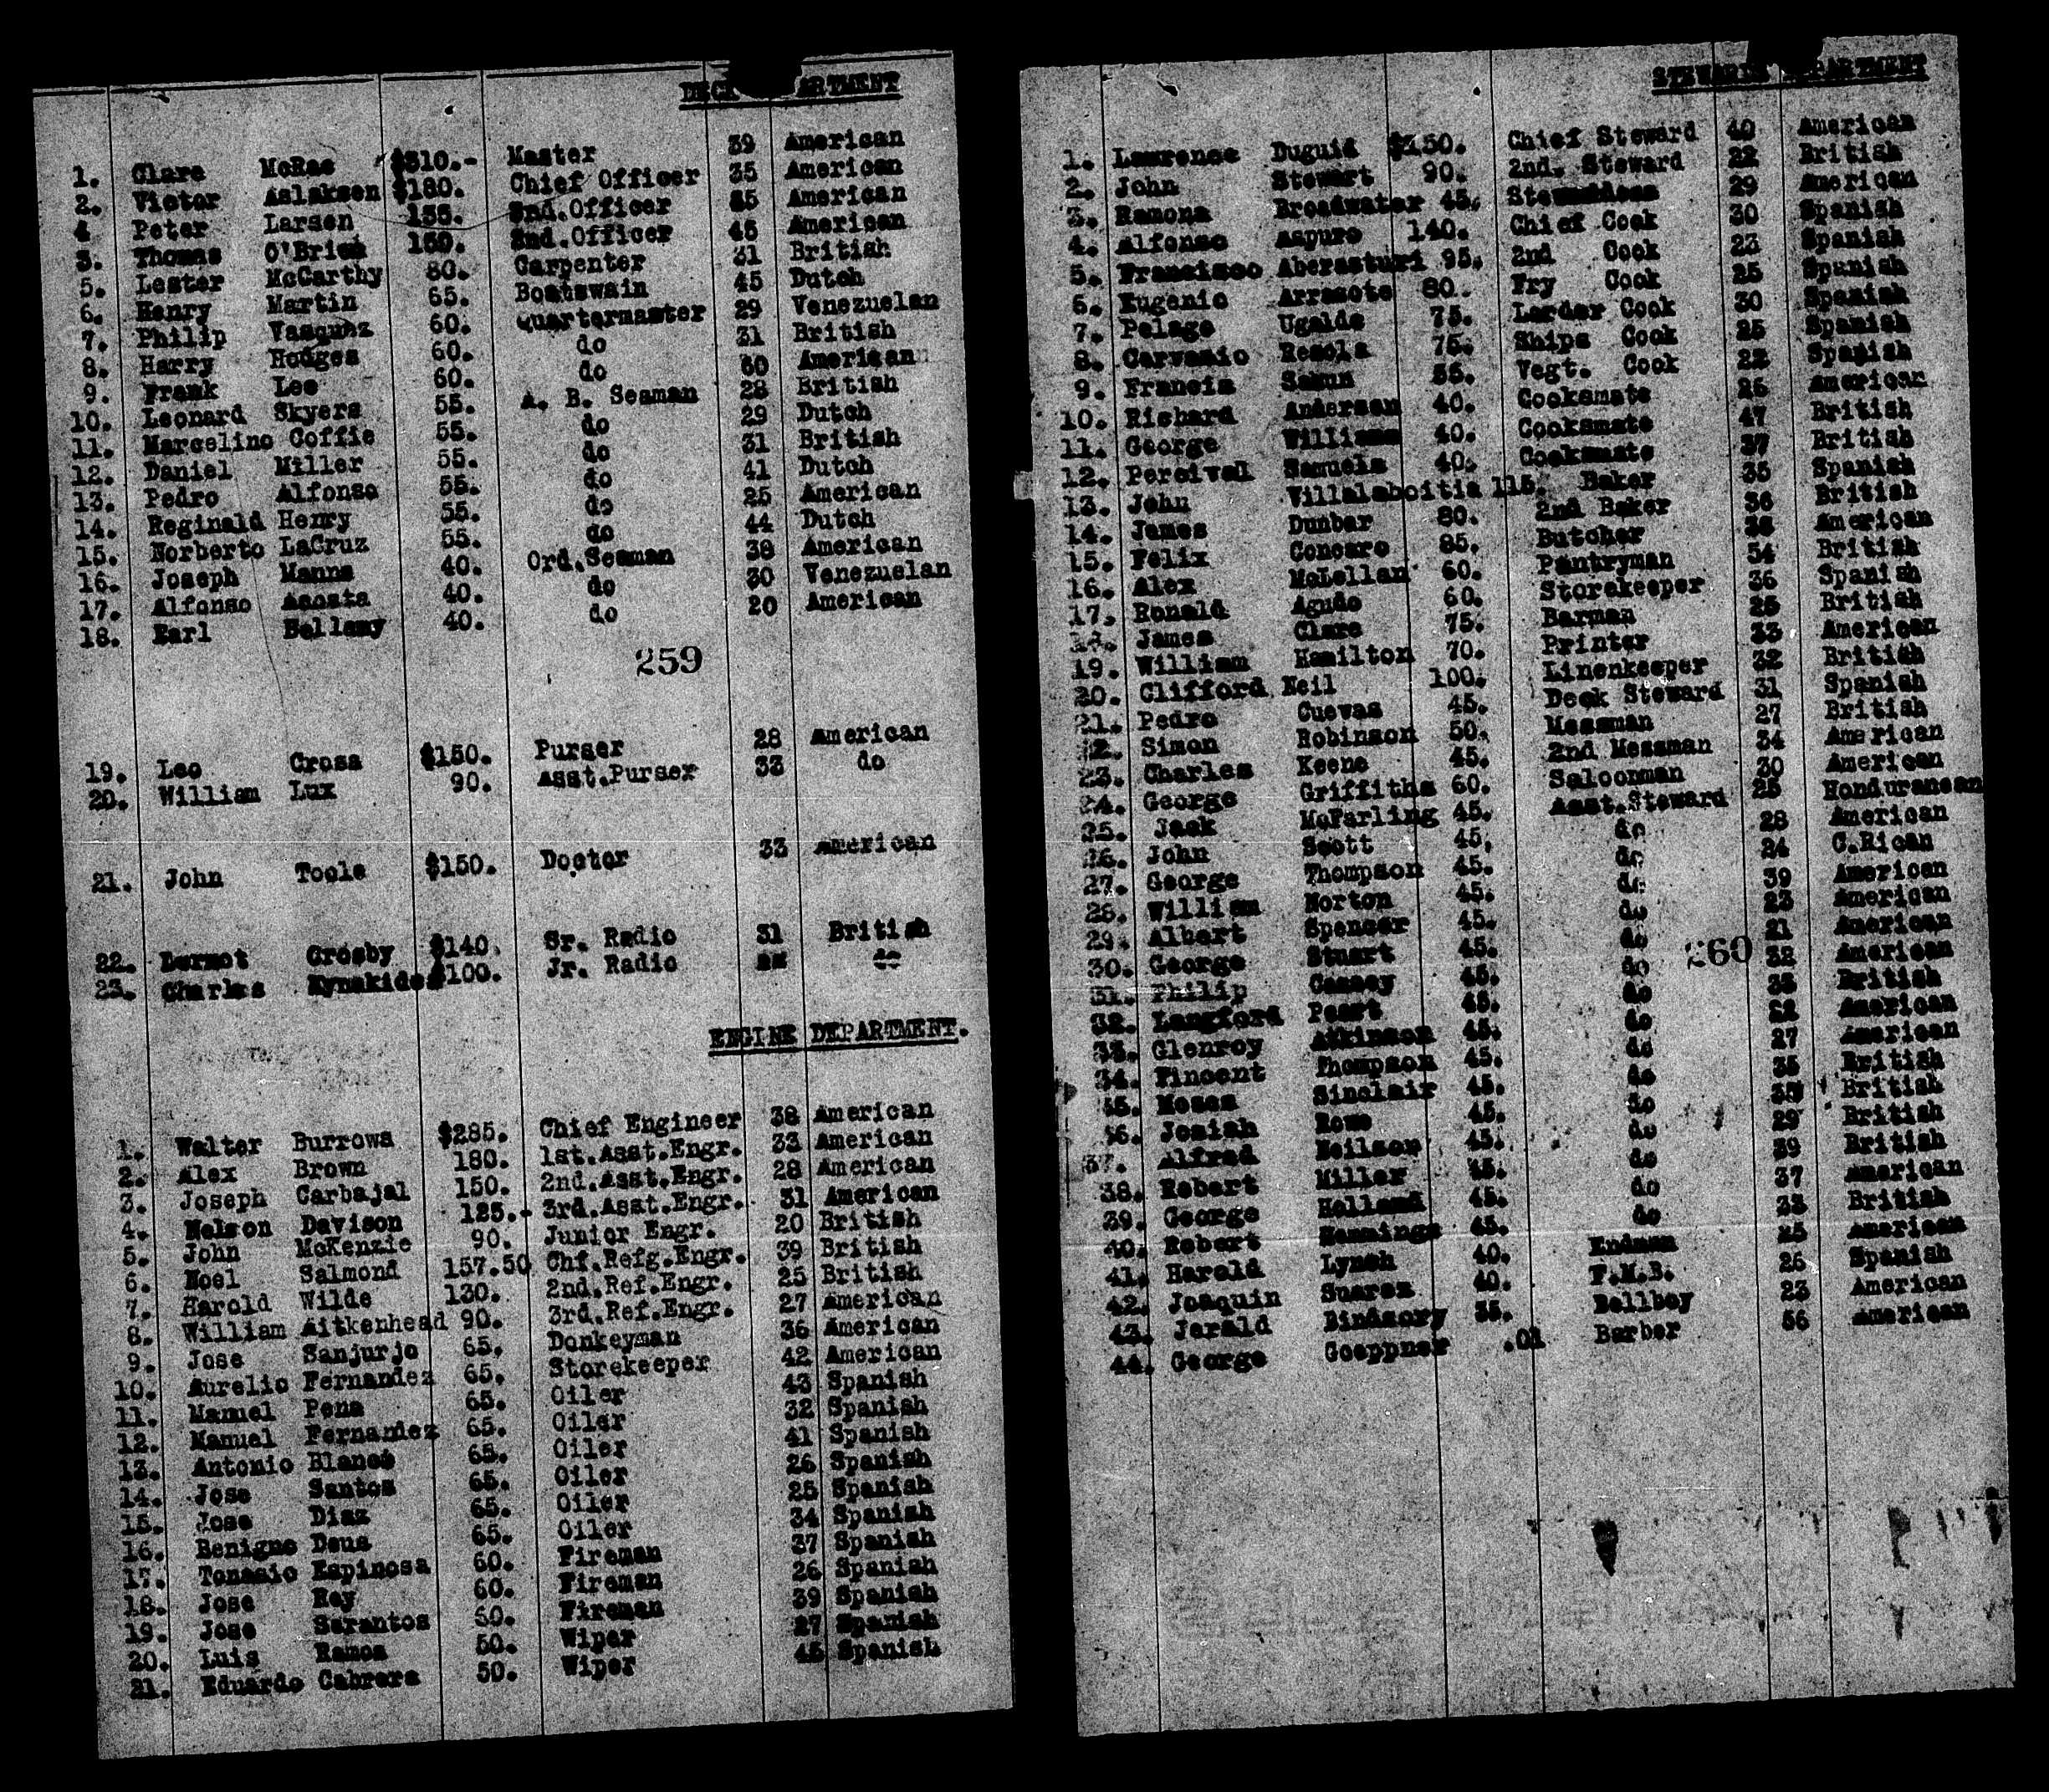 DECK DEPARTMENT
1. Clare McRae $310.- Master 39 American
2. Victor Aslaksen $180. Chief Officer 35 American
4 Peter Larsen 135. 3rd.Officer 35 American
3. Thomas O'Brien 150. 2nd.Officer 45 American
5. Lester McCarthy 80. Carpenter 31 British
6. Henry Martin 65. Boatswain 45 Dutch
7. Philip Vasquez 60. Quartermaster 29 Venezuelan
8. Harry Hodges 60. do 31 British
9. Frank Lee 60. do 60 American
10. Leonard Skyers 55. A. B. Seaman 28 British
11. Marcelino Coffie 55. do 29 Dutch
12. Daniel Miller 55. do 31 British
13. Pedro Alfonso 55. do 41 Dutch
14. Reginald Henry 55. do 25 American
15. Norberto LaCruz 55. do 44 Dutch
16. Joseph Manna 40. Ord.Seaman 38 American
17. Alfonso Acosta 40. do 30 Venezuelan
18. Earl Bellamy 40. do 20 American
259
19. Leo Crosa $150. Purser 28 American
20. William Lux 90. Asst.Purser 33 do
21. John Toole $150. Doctor 33 American
22. Dermot Crosby $140. Sr. Radio 31 British
23. Charles Kynakides $100. Jr. Radio do
ENGINE DEPARTMENT.
1. Walter Burrows $285. Chief Engineer 38 American
2. Alex Brown 180. 1st.Asst.Engr. 33 American
3. Joseph Carbajal 150. 2nd.Asst.Engr. 28 American
4. Nelson Davison 125.- 3rd.Asst.Engr. 31 American
5. John McKenzie 90. Junior Engr. 20 British
6. Noel Salmond 157.50 Chf.Refg.Engr. 39 British
7. Harold Wilde 130. 2nd.Ref.Engr. 25 British
8. William Aitkenhead 90. 3rd.Ref.Engr. 27 American
9. Jose Sanjurjo 65. Donkeyman 36 American
10. Aurelio Fernandez 65. Storekeeper 42 American
11. Manuel Pena 65. Oiler 43 Spanish
12. Manuel Fernandez 65. Oiler 32 Spanish
13. Antonio Blanco 65. Oiler 41 Spanish
14. Jose Santos 65. Oiler 26 Spanish
15. Jose Diaz 65. Oiler 25 Spanish
16. Benigno Deus 65. Oiler 34 Spanish
17. Tomasio Espinosa 60. Fireman 37 Spanish
18. Jose Rey 60. Fireman 26 Spanish
19. Jose Sarantos 60. Fireman 39 Spanish
20. Luis Ramos 50. Wiper 27 Spanish
21. Eduardo Cabrera 50. Wiper 45 Spanish
STEWARDS DEPARTMENT
1. Lawrence Duguid $150. Chief Steward 40 American
2. John Stewart 90. 2nd. Steward 22 British
3. Ramona Broadwater 45. Stewardess 29 American
4. Alfonso Aspuro 140. Chief Cook 30 Spanish
5. Francisco Aberasturi 95. 2nd Cook 23 Spanish
6. Eugenio Arrasote 80. Fry Cook 25 Spanish
7. Pelage Ugalde 75. Larder Cook 30 Spanish
8. Carvanio Resola 75. Ships Cook 25 Spanish
9. Francis Samun 55. Vegt. Cook 22 Spanish
10. Richard Anderson 40. Cooksmate 26 American
11. George Williams 40. Cooksmate 47 British
12. Percival Samuels 40. Cooksmate 37 British
13. John Villalaboitia 115. Baker 35 Spanish
14. James Dunbar 80. 2nd Baker 36 British
15. Felix Concaro 85. Butcher American
16. Alex McLellan 60. Pantryman 54 British
17. Ronald Agudo 60. Storekeeper 36 Spanish
18. James Clare 75. Barman 25 British
19. William Hamilton 70. Printer 33 American
20. Clifford Neil 100. Linenkeeper 32 British
21. Pedro Cuevas 45. Deck Steward 31 Spanish
22. Simon Robinson 50. Messman 27 British
23. Charles Keene 45. 2nd Messman 34 American
24. George Griffiths 60. Saloonman 30 American
25. Jack McFarling 45. Asst.Steward 25 Honduranean
26. John Scott 45. do 28 American
27. George Thompson 45. do 24 C.Rican
28. William Norton 45. do 39 American
29. Albert Spencer 45. do 23 American
30. George Stuart 45. do 21 American
260
31. Philip Casney 45. do 32 American
32. Langford Peart 45. do British
33. Glenroy Atkinson 45. do American
34. Vincent Thompson 45. do 27 American
35. Moses Sinclair 45. do 35 British
36. Josiah Rowe 45. do British
37. Alfred Neilson 45. do 29 British
38. Robert Miller 45. do 39 British
39. George Holland 45. do 37 American
40. Robert Hemmings 45. Endman British
41. Harold Lynch 40. 25 American
42. Joaquin Suarez 40. F.M.B. 26 Spanish
43. Jerald Bindsory 35. Bellboy 23 American
44. George Goeppner .01 Barber 56 American